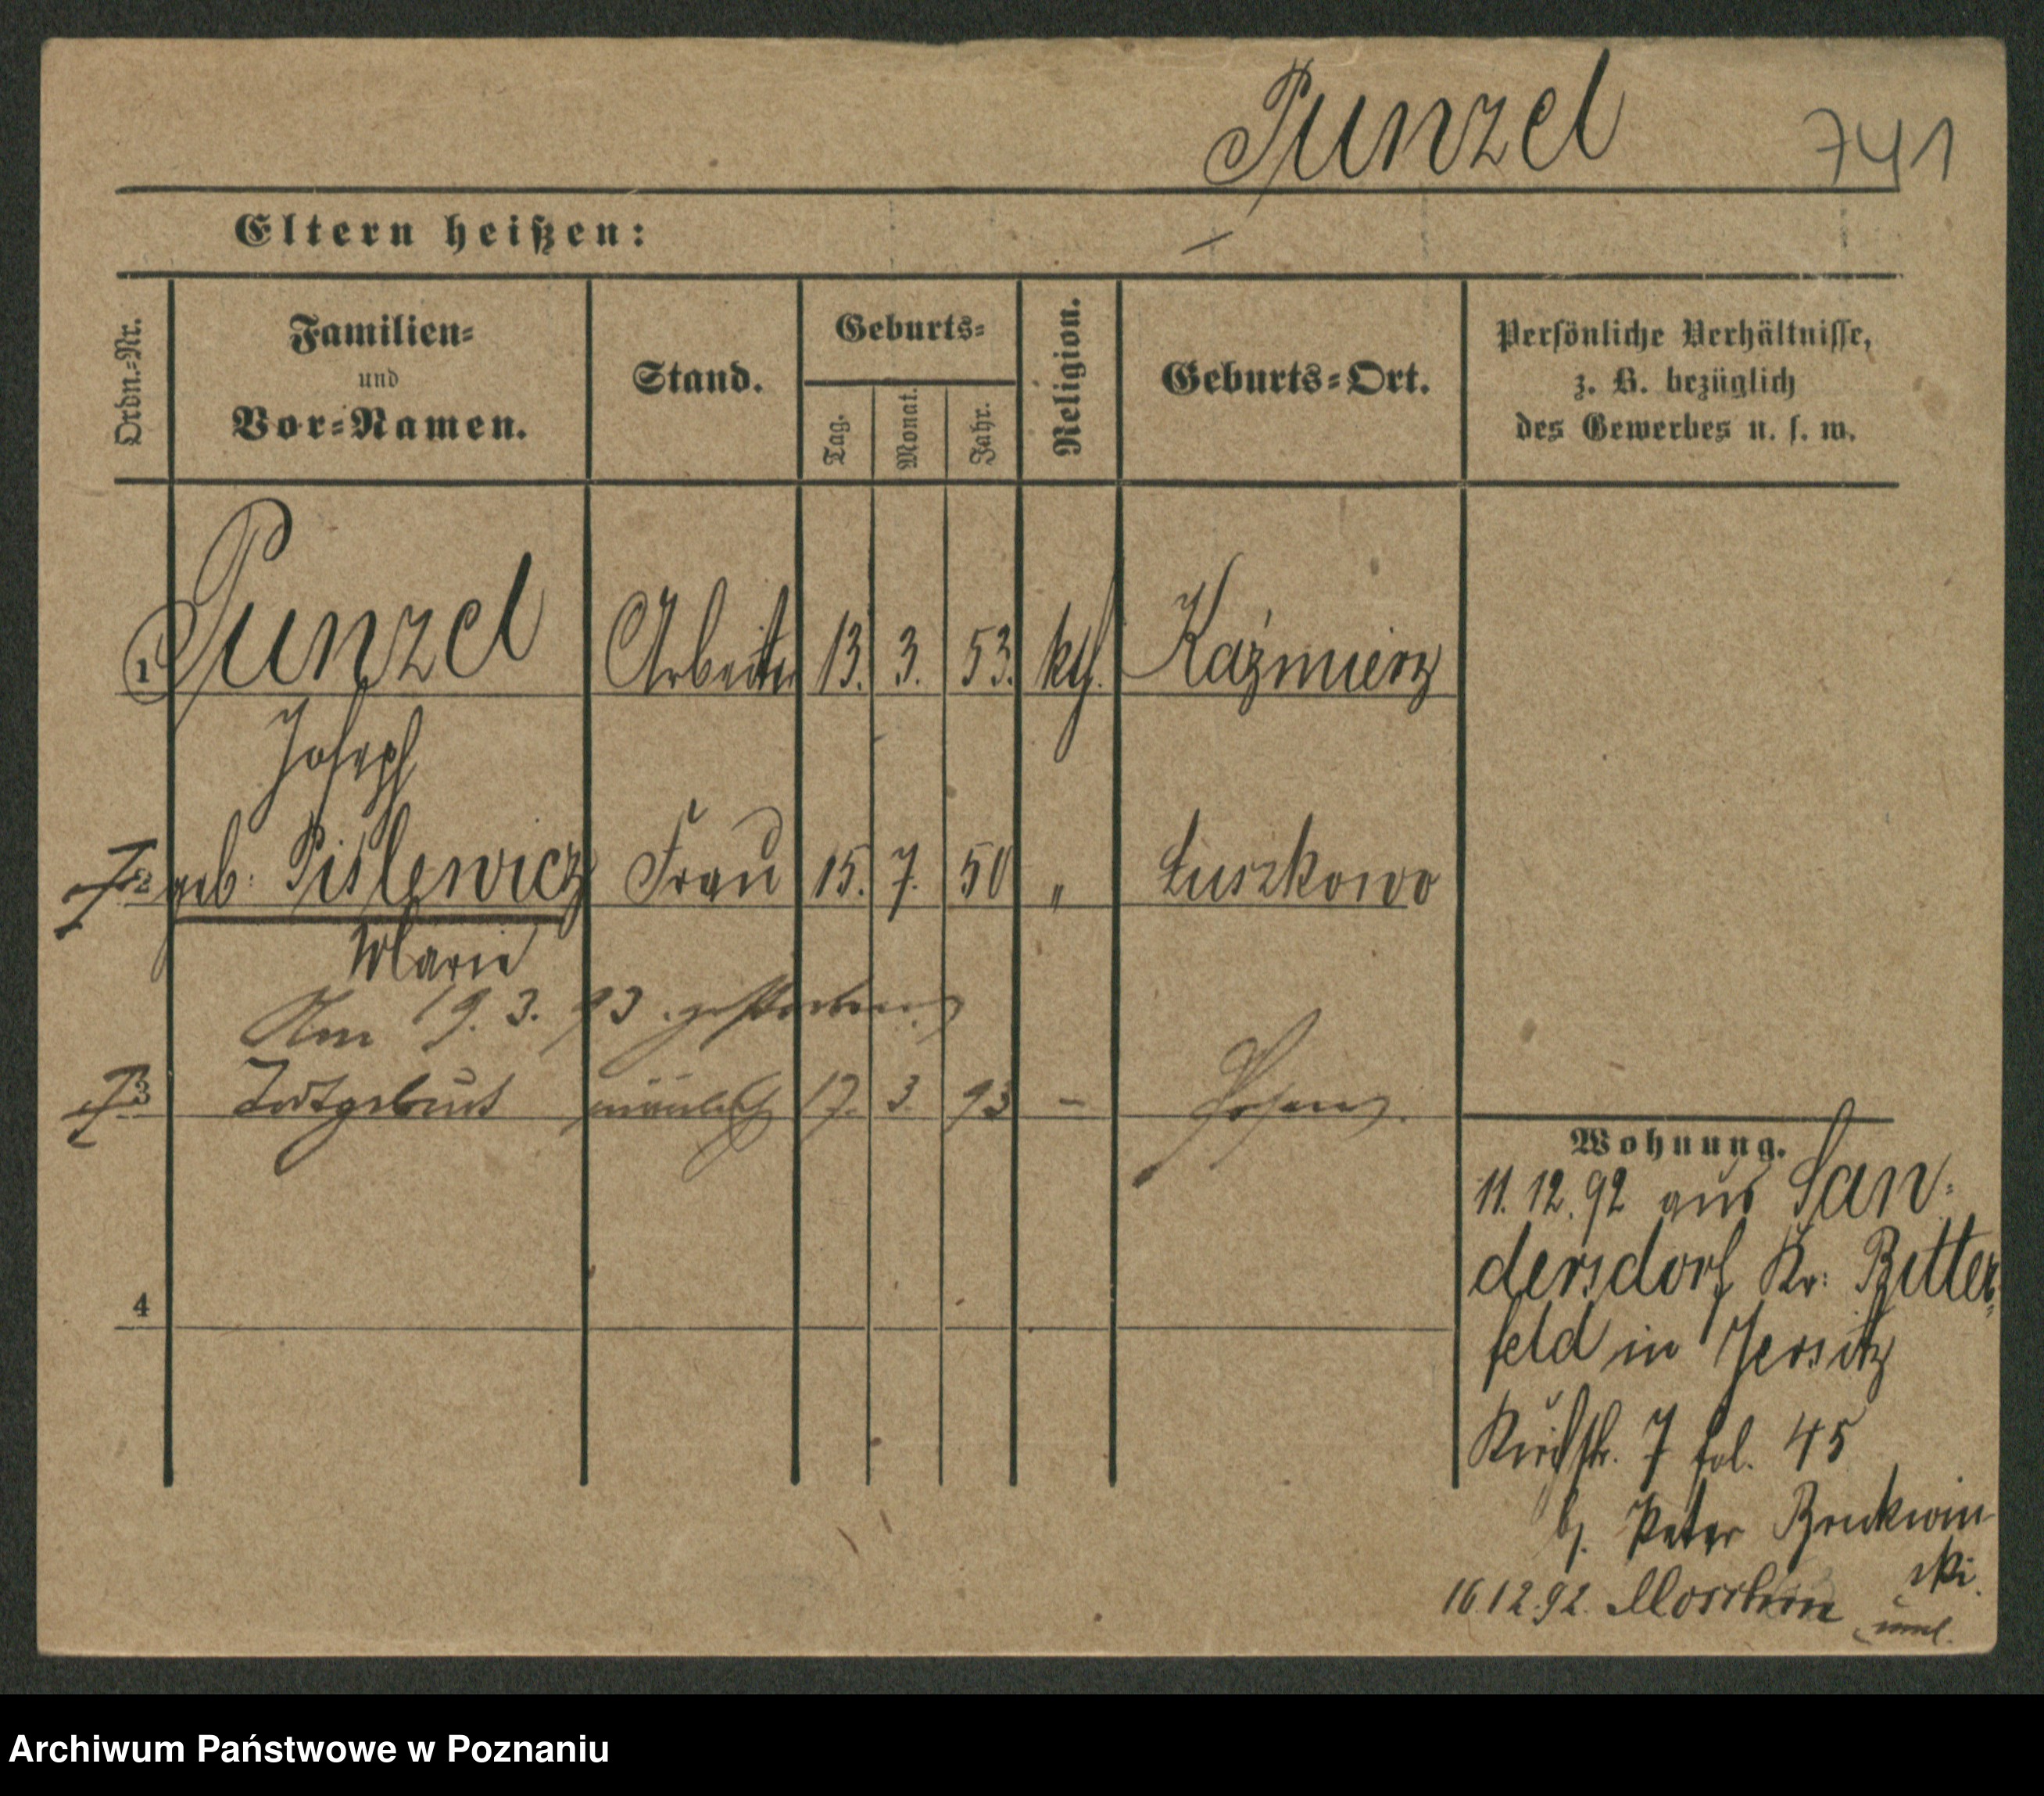 Punzel 741
Eltern heißen: —
Ordn.-Nr.
Familien-
und
Vor-Namen.
Stand.
Geburts-
Tag.
Monat.
Jahr.
Religion.
Geburts-Ort.
Persönliche Verhältnisse,
z. B. bezüglich
des Gewerbes u. s. w.
1 Punzel Arbeiter 13. 3. 53. kth. Kaźmierz
Joseph
2 geb: Pislewicz Frau 15. 7. 50 " Łuszkowo
Marie
Am 19. 3. 93 gestorben
3 Todtgeburt männlich 17. 3. 93 - Posen.
4
Wohnung.
11. 12. 92 aus San-
dersdorf Kr: Bitter-
feld in Jersitz
Kirchstr. 7 fol. 45
b/. Peter Brukwin
ski.
16.12.92.
Archiwum Państwowe w Poznaniu